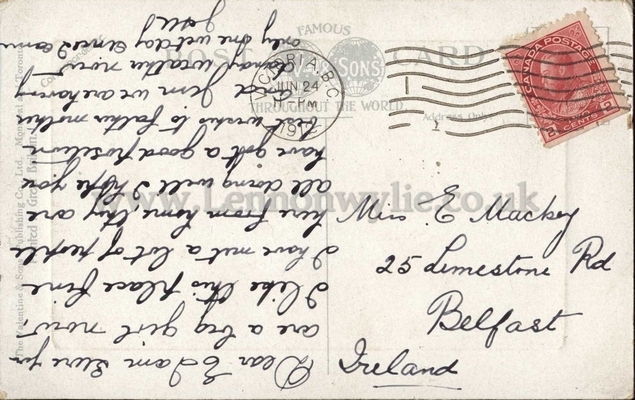 FAMOUS
POST CARD
SON'S
THROUGHOUT THE WORLD
Address Only
VICTORIA, B.C.
JUN 24
PM
CANADA POSTAGE
2 CENTS 2
The Valentine & Sons Publishing Co., Ltd., Montreal and Toronto
Printed in Great Britain.
www.Lennonwylie.co.uk
Miss E Mackey
25 Limestone Rd
Belfast
Ireland
Dear E I am sure you
are a big girl now,
I like this place fine
I have met a lot of people
here from home, they are
all doing well I hope you
have got a good
best wishes to father mother
and Jean we are having
weather now
only one wet day since I came